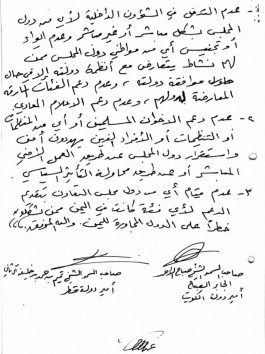 ١- عدم التدخل في الشؤون الداخلية لأي من دول
المجلس بشكل مباشر أو غير مباشر وعدم إيواء
أو تجنيس أي من مواطني دول المجلس ممن
لهم نشاط يتعارض مع أنظمة دولته إلا في حال
موافقة دولته، وعدم دعم الفئات المارقة
المعارضة لدولهم، وعدم دعم الإعلام المعادي
٢- عدم دعم الإخوان المسلمين أو أي من المنظمات
أو التنظيمات أو الأفراد الذين يهددون أمن
واستقرار دول المجلس عن طريق العمل الأمني
المباشر أو عن طريق محاولة التأثير السياسي
٣- عدم قيام أي من دول مجلس التعاون بتقديم
الدعم لأي فئة كانت في اليمن ممن يشكلون
خطراً على الدول المجاورة لليمن. والله الموفق
صاحب السمو الشيخ تميم بن حمد بن خليفة آل ثاني
أمير دولة قطر
صاحب السمو الشيخ صباح الأحمد
الجابر الصباح
أمير دولة الكويت